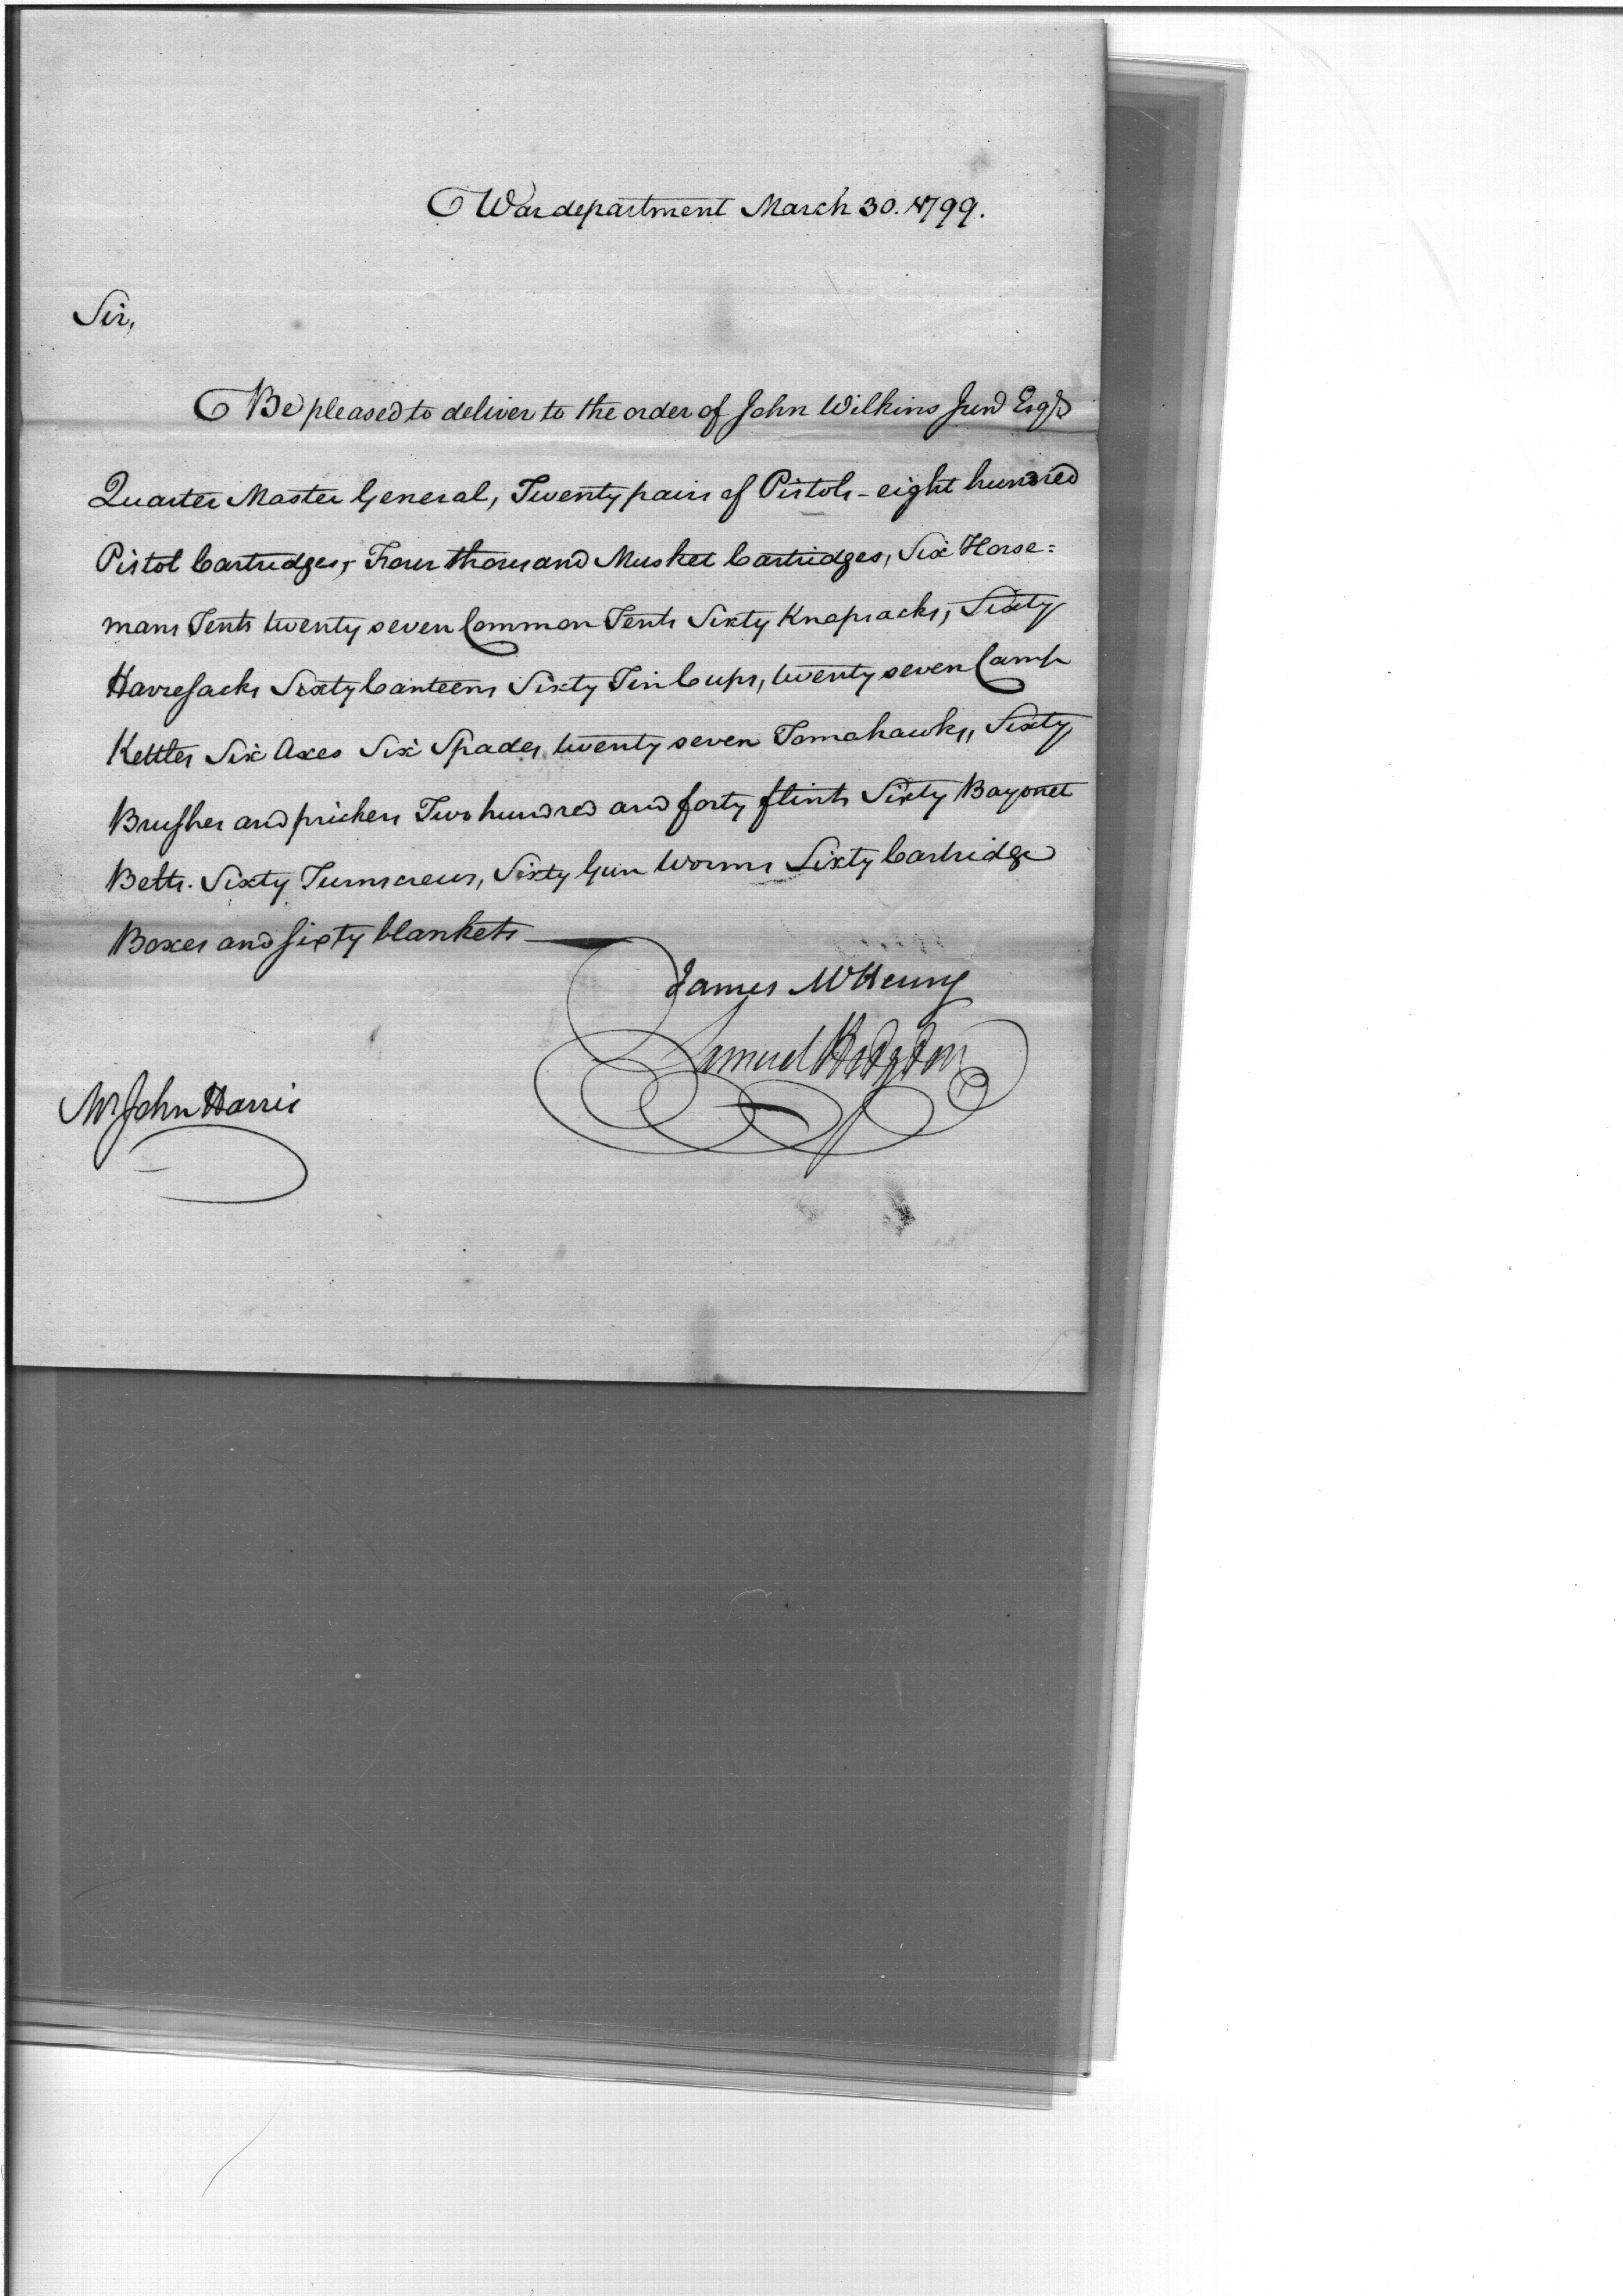 War department March 30. 1799.
Sir,
Be pleased to deliver to the order of John Wilkins Junr Esqr
Quarter Master General, Twenty pairs of Pistols - eight hundred
Pistol Cartridges, Four thousand Musket Cartridges, Six Horse=
mans Tents twenty seven Common Tents Sixty Knapsacks, Sixty
Havresacks Sixty Canteens Sixty Tin Cups, twenty seven Camp
Kettles Six Axes Six Spades, twenty seven Tomahawks, Sixty
Brushes and prickers Two hundred and forty flints Sixty Bayonet
Belts. Sixty Turnscrews, Sixty Gun Worms Sixty Cartridge
Boxes and sixty blankets
James McHenry
Samuel Hodgdon
Mr John Harris